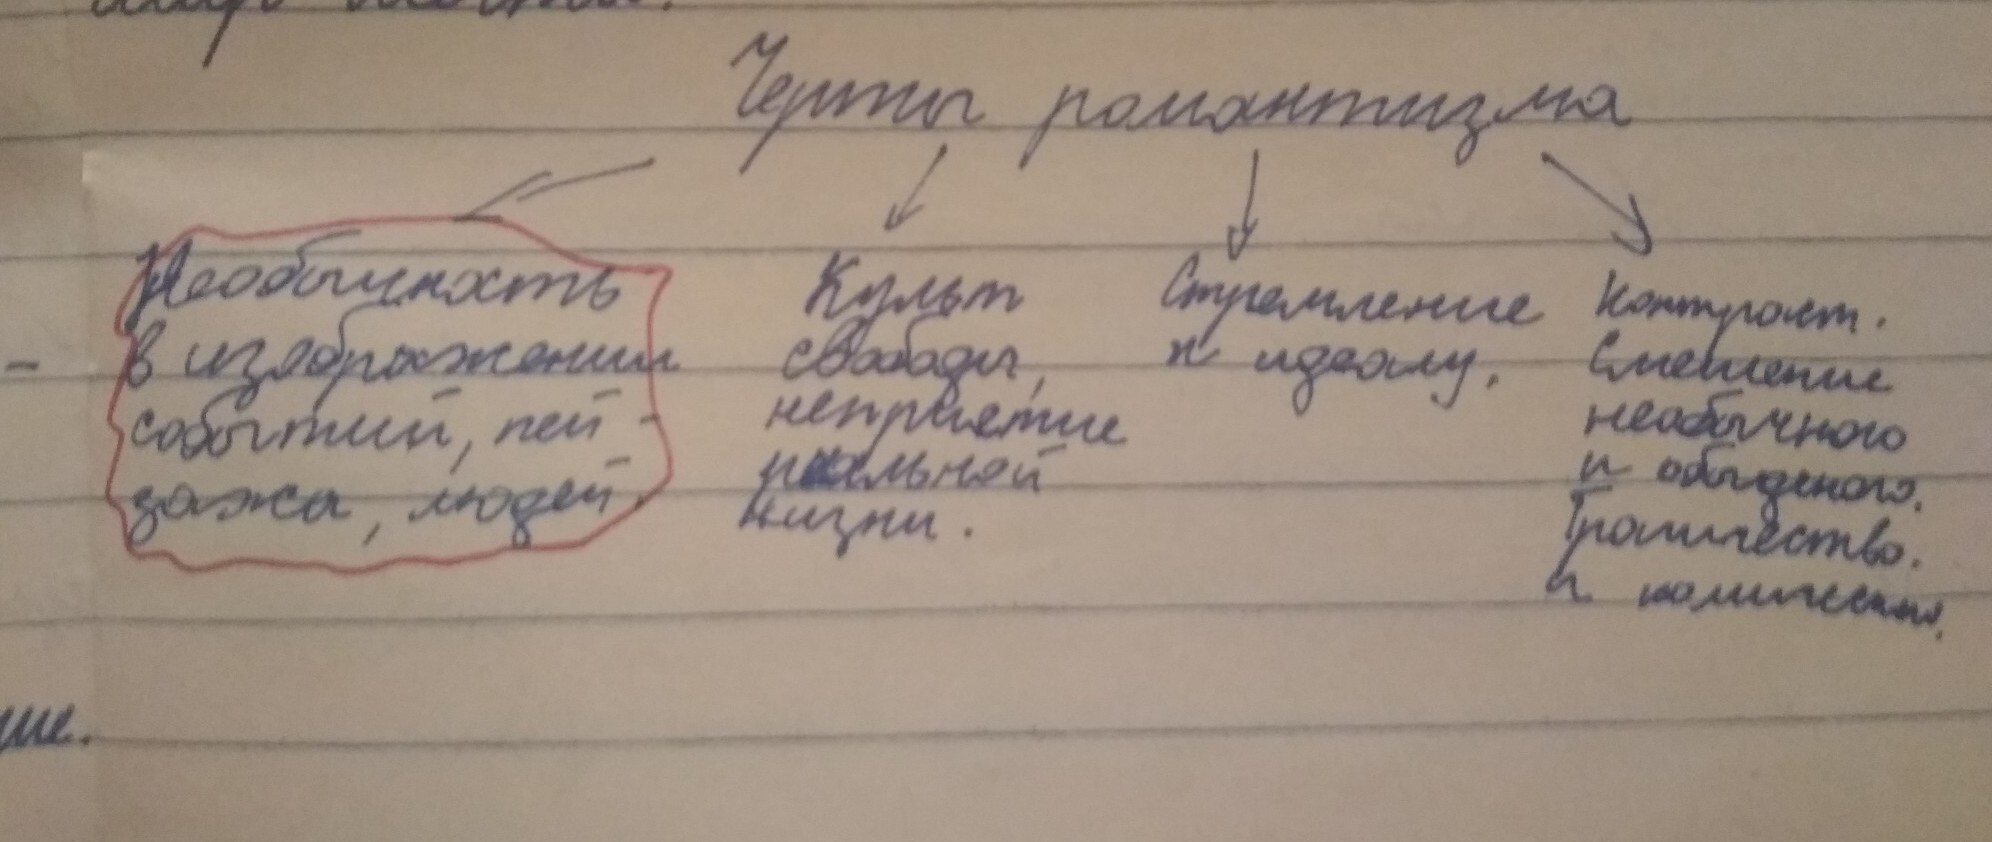 Черты романтизма
Необычность
в изображении
событий, пей-
зажа, людей.
Культ
свободы,
неприятие
реальной
жизни.
Стремление
к идеалу.
Контраст.
Смешение
необычного
и обыденого.
и